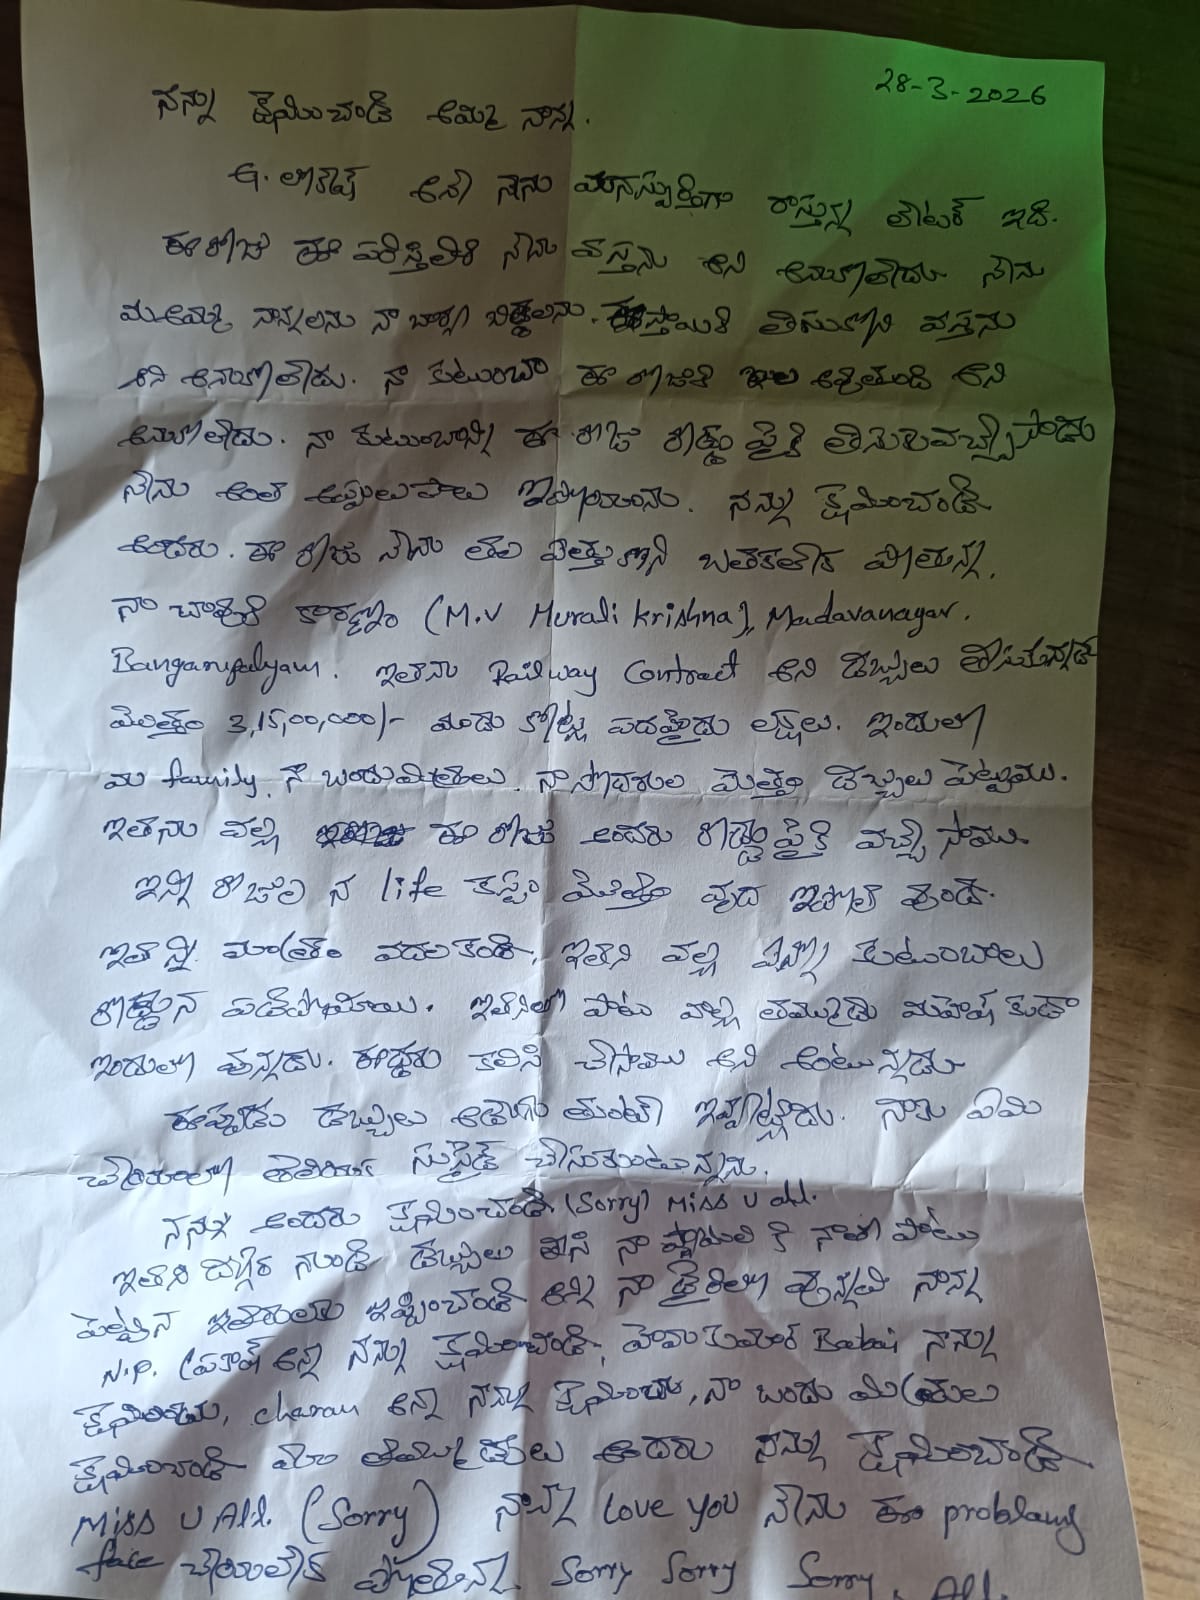 28-3-2026
నన్ను క్షమించండి అమ్మ నాన్న.
G. లోకేష్ అనే నేను మనస్పూర్తిగా రాస్తున్న లేటర్ ఇది.
ఈ రోజు ఈ పరిస్తితికి నేను వస్తను అని అనుకోలేదు నేను
మఅమ్మ నాన్నలను నా బార్య బిడ్డలను. ఈస్తాయికి తిసుకోని వస్తను
అని అనుకోలేదు. నా కుటుంబం ఈ రోజుకి ఇల అవుతుంది అని
అనుకోలేదు. నా కుటుంబాన్ని ఈ రోజు రోడ్డు పైకి తిసుకువచ్చేసాడు
నేను అంత అప్పులుపాలు ఇపోయాను. నన్ను క్షమించండి
అందరు. ఈ రోజు నేను తల ఎత్తుకొని బతకలేక పోతున్న.
నా చావుకి కారణం (M.V Murali Krishna), Madavanagar.
Bangarupalyam. ఇతను Railway Contract అని డబ్బులు తీసుకున్నాడు
మొత్తం 3,15,00,000/- మూడు కోట్ల పదహైదు లక్షలు. ఇందులో
మ family, నా బందుమిత్రులు. నా సోదరుల మొత్తం డబ్బులు పెట్టాము.
ఇతను వల్ల ఈ రోజు అందరు రోడ్డు పైకి వచ్చే సాము.
ఇన్ని రోజుల న life కష్టం మొత్తం వృద ఇపోతా వుంది.
ఇతన్ని మాత్రం వదలకండి, ఇతని వల్ల ఎన్నో కుటుంబాలు
రోడ్డున పడిపోయాయి. ఇతనితో పాటు వాల్ల తమ్ముడు మహేష్ కుడా
ఇందులో వున్నడు. ఈద్దరు కలిసి చేసాము అని అంటున్నడు
ఈప్పుడు డబ్బులు అడుగు తుంటే ఇవ్వట్లేదు. నాకు ఏమి
చేయాలో తెలియక సుసైడ్ చేసుకుంటున్నను.
నన్ను అందరు క్షమించండి (Sorry) Miss U all.
ఇతని దగ్గర నుండి డబ్బులు తీసి నా ఫ్యామిలి కి నాతో పాటు
పెట్టిన ఇతరులకు ఇప్పించండి అన్ని నా డైరీలో వున్నవి నాన్న
N.P. ప్రకాష్ అన్న నన్ను క్షమించండి, హేమకుమార్ Babai నన్ను
క్షమించు, charan అన్న నన్ను క్షమించు, నా బందు మిత్రుల
క్షమించండి మా తమ్ముడులు అందరు నన్ను క్షమించండి
Miss U All. (Sorry) నాన్న Love you నేను ఈ problams
face చేయలేక పోతున్న Sorry Sorry Sorry. All.